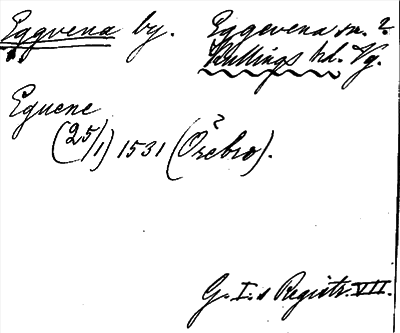 Eggvena by. Eggevena sn.?
Kullings hd. Vg.
Eguene
(25/1) 1531 (Örebro).
G. I.s Registr. VII.